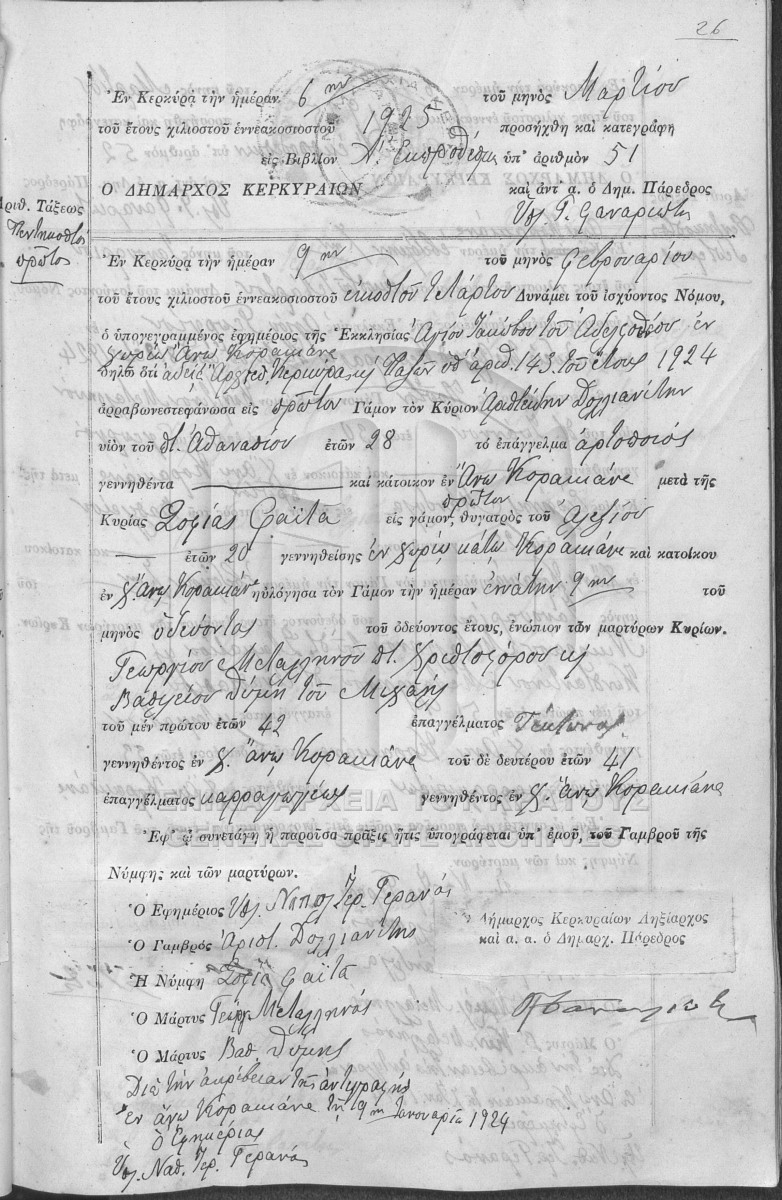 26
Ἐν Κερκύρᾳ τὴν ἡμέραν 6ην τοῦ μηνὸς Μαρτίου
τοῦ ἔτους χιλιοστοῦ ἐννεακοσιοστοῦ 1925 προσήχθη καὶ κατεγράφη
εἰς Βιβλίον Λ. Ἐκπροθέσμ ὑπ' ἀριθμὸν 51
Ο ΔΗΜΑΡΧΟΣ ΚΕΡΚΥΡΑΙΩΝ καὶ ἀντ α. ὁ Δημ. Πάρεδρος
Ἀριθ. Τάξεως
Πεντηκοστὸς
πρῶτος
Ἐν Κερκύρᾳ τὴν ἡμέραν 9ην τοῦ μηνὸς Φεβρουαρίου
τοῦ ἔτους χιλιοστοῦ ἐννεακοσιοστοῦ εἰκοστοῦ τετάρτου Δυνάμει τοῦ ἰσχύοντος Νόμου,
ὁ ὑπογεγραμμένος ἐφημέριος τῆς Ἐκκλησίας Ἁγίου Ἰακώβου τοῦ Ἀδελφοθέου ἐν
χωρίῳ Ἄνω Κορακιάνα
δηλῶ ὅτι ἀδείᾳ Ἀρχιεπ. Κερκύρας κ Παξῶν ὑπ' ἀριθ. 143 τοῦ ἔτους 1924
ἀρραβωνεστεφάνωσα εἰς πρῶτον Γάμον τὸν Κύριον Ἀριστείδην Δολλιανίτην
υἱὸν τοῦ π. Ἀθανασίου ἐτῶν 28 τὸ ἐπάγγελμα ἀρτοποιός
γεννηθέντα καὶ κάτοικον ἐν Ἄνω Κορακιάνα μετὰ τῆς
Κυρίας Σοφίας Φαΐτα εἰς πρῶτον γάμον, θυγατρὸς τοῦ Ἀλεξίου
ἐτῶν 20 γεννηθείσης ἐν χωρίῳ κάτω Κορακιάνα καὶ κατοίκου
ἐν χ. Ἄνω Κορακιάνα ηὐλόγησα τὸν Γάμον τὴν ἡμέραν ἐννάτην 9ην τοῦ
μηνὸς ὁδεύοντος τοῦ ὁδεύοντος ἔτους, ἐνώπιον τῶν μαρτύρων Κυρίων.
Γεωργίου Μεταλληνοῦ π. Χριστοφόρου κ
Βασιλείου Θύμη τοῦ Μιχαὴλ
τοῦ μὲν πρώτου ἐτῶν 42 ἐπαγγέλματος Τέκτονος
γεννηθέντος ἐν χ. Ἄνω Κορακιάνα τοῦ δὲ δευτέρου ἐτῶν 41
ἐπαγγέλματος καρραγωγέως γεννηθέντος ἐν χ. Ἄνω Κορακιάνα
ΓΕΝΙΚΑ ΑΡΧΕΙΑ ΤΟΥ ΚΡΑΤΟΥΣ
GENERAL STATE ARCHIVES
Ἐφ' ᾧ συνετάγη ἡ παροῦσα πρᾶξις ἥτις ὑπογράφεται ὑπ' ἐμοῦ, τοῦ Γαμβροῦ τῆς
Νύμφης καὶ τῶν μαρτύρων.
Ὁ Ἐφημέριος Ὑπ. Ἱερ. Γερανός
Ὁ Γαμβρὸς Ἀριστ. Δολλιανίτης
Ἡ Νύμφη Σοφία Φαΐτα
Ὁ Μάρτυς Γεώργ. Μεταλληνός
Ὁ Μάρτυς Βασ. Θύμης
Δήμαρχος Κερκυραίων Ληξίαρχος
καὶ α. α. ὁ Δημαρχ. Πάρεδρος
Διὰ τὴν ἀκρίβειαν τῆς ἀντιγραφῆς
Ἐν ἄνω Κορακιάνα τῇ 9ην Ἰανουαρίου 1924
Ὁ Ἐφημέριος
Ὑπ. Ναθ. Ἱερ. Γερανός